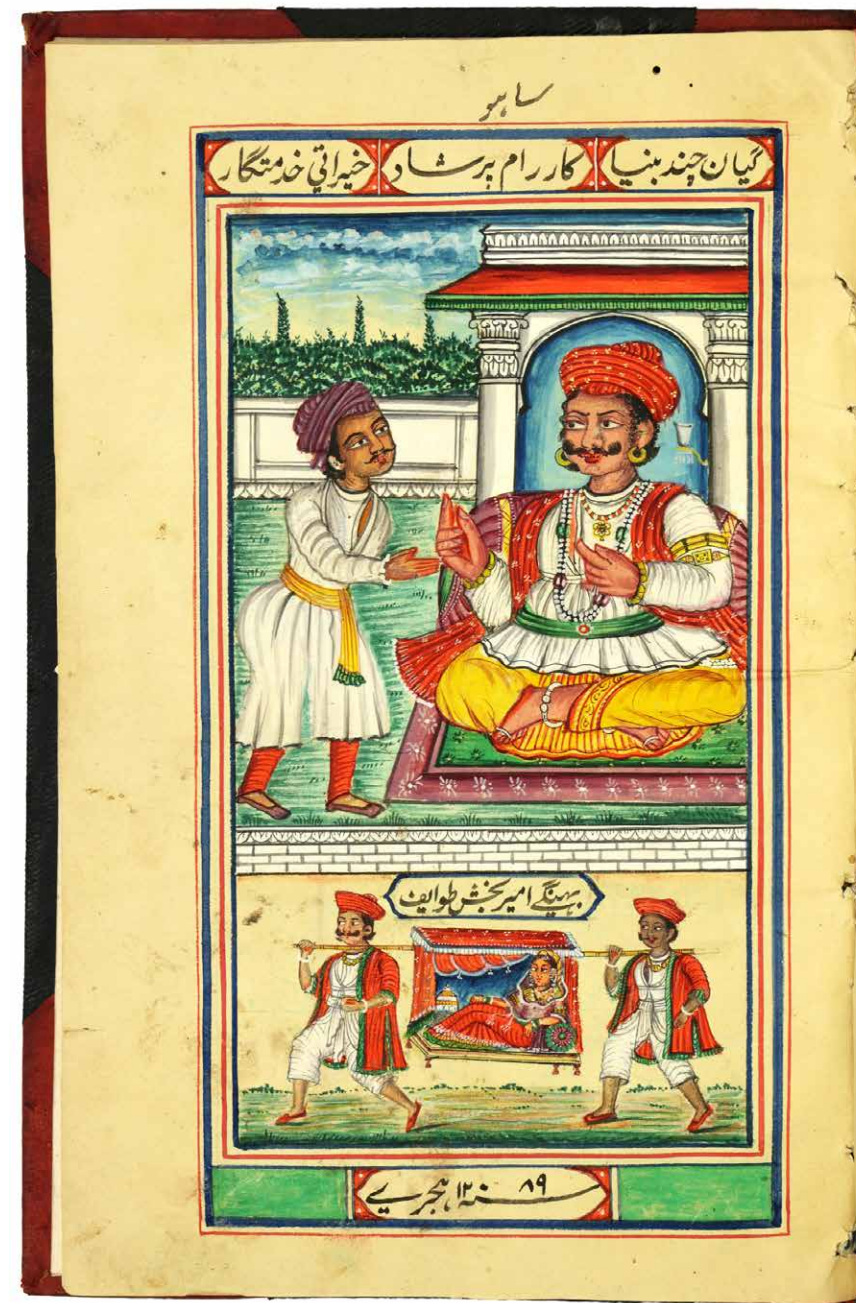 ساہو
گیان چند بنیا کار رام پرشاد خیراتي خدمتگار
بہینگے امیر بخش طوایف
سنہ ۱۲۸۹ ہجرے